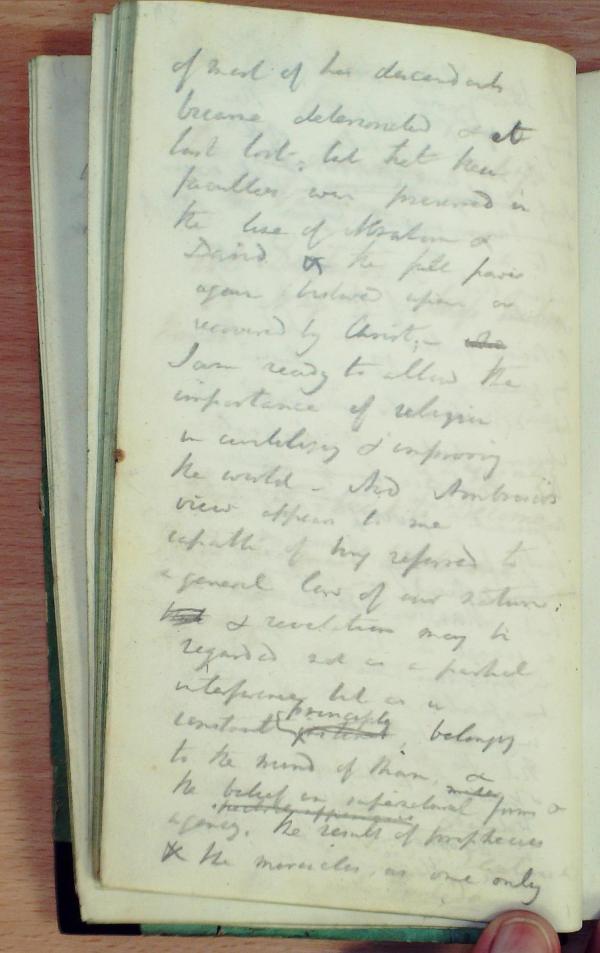 of most of his descendants
became deteriorated & at
last lost; but that these
faculties were preserved in
the line of Abraham &
David & the full power
again bestowed upon or
recovered by Christ;-
I am ready to allow the
importance of religion
in civilising & improving
the world - And Ambrosio's
view appears to me
capable of being referred to
a general law of our nature;
& revelation may be
regarded not as a partial
interference but as a
constant principle belonging
to the mind of Man, &
the belief in supernatural forms &
agency, the results of prophecies
& the miracles, as one only